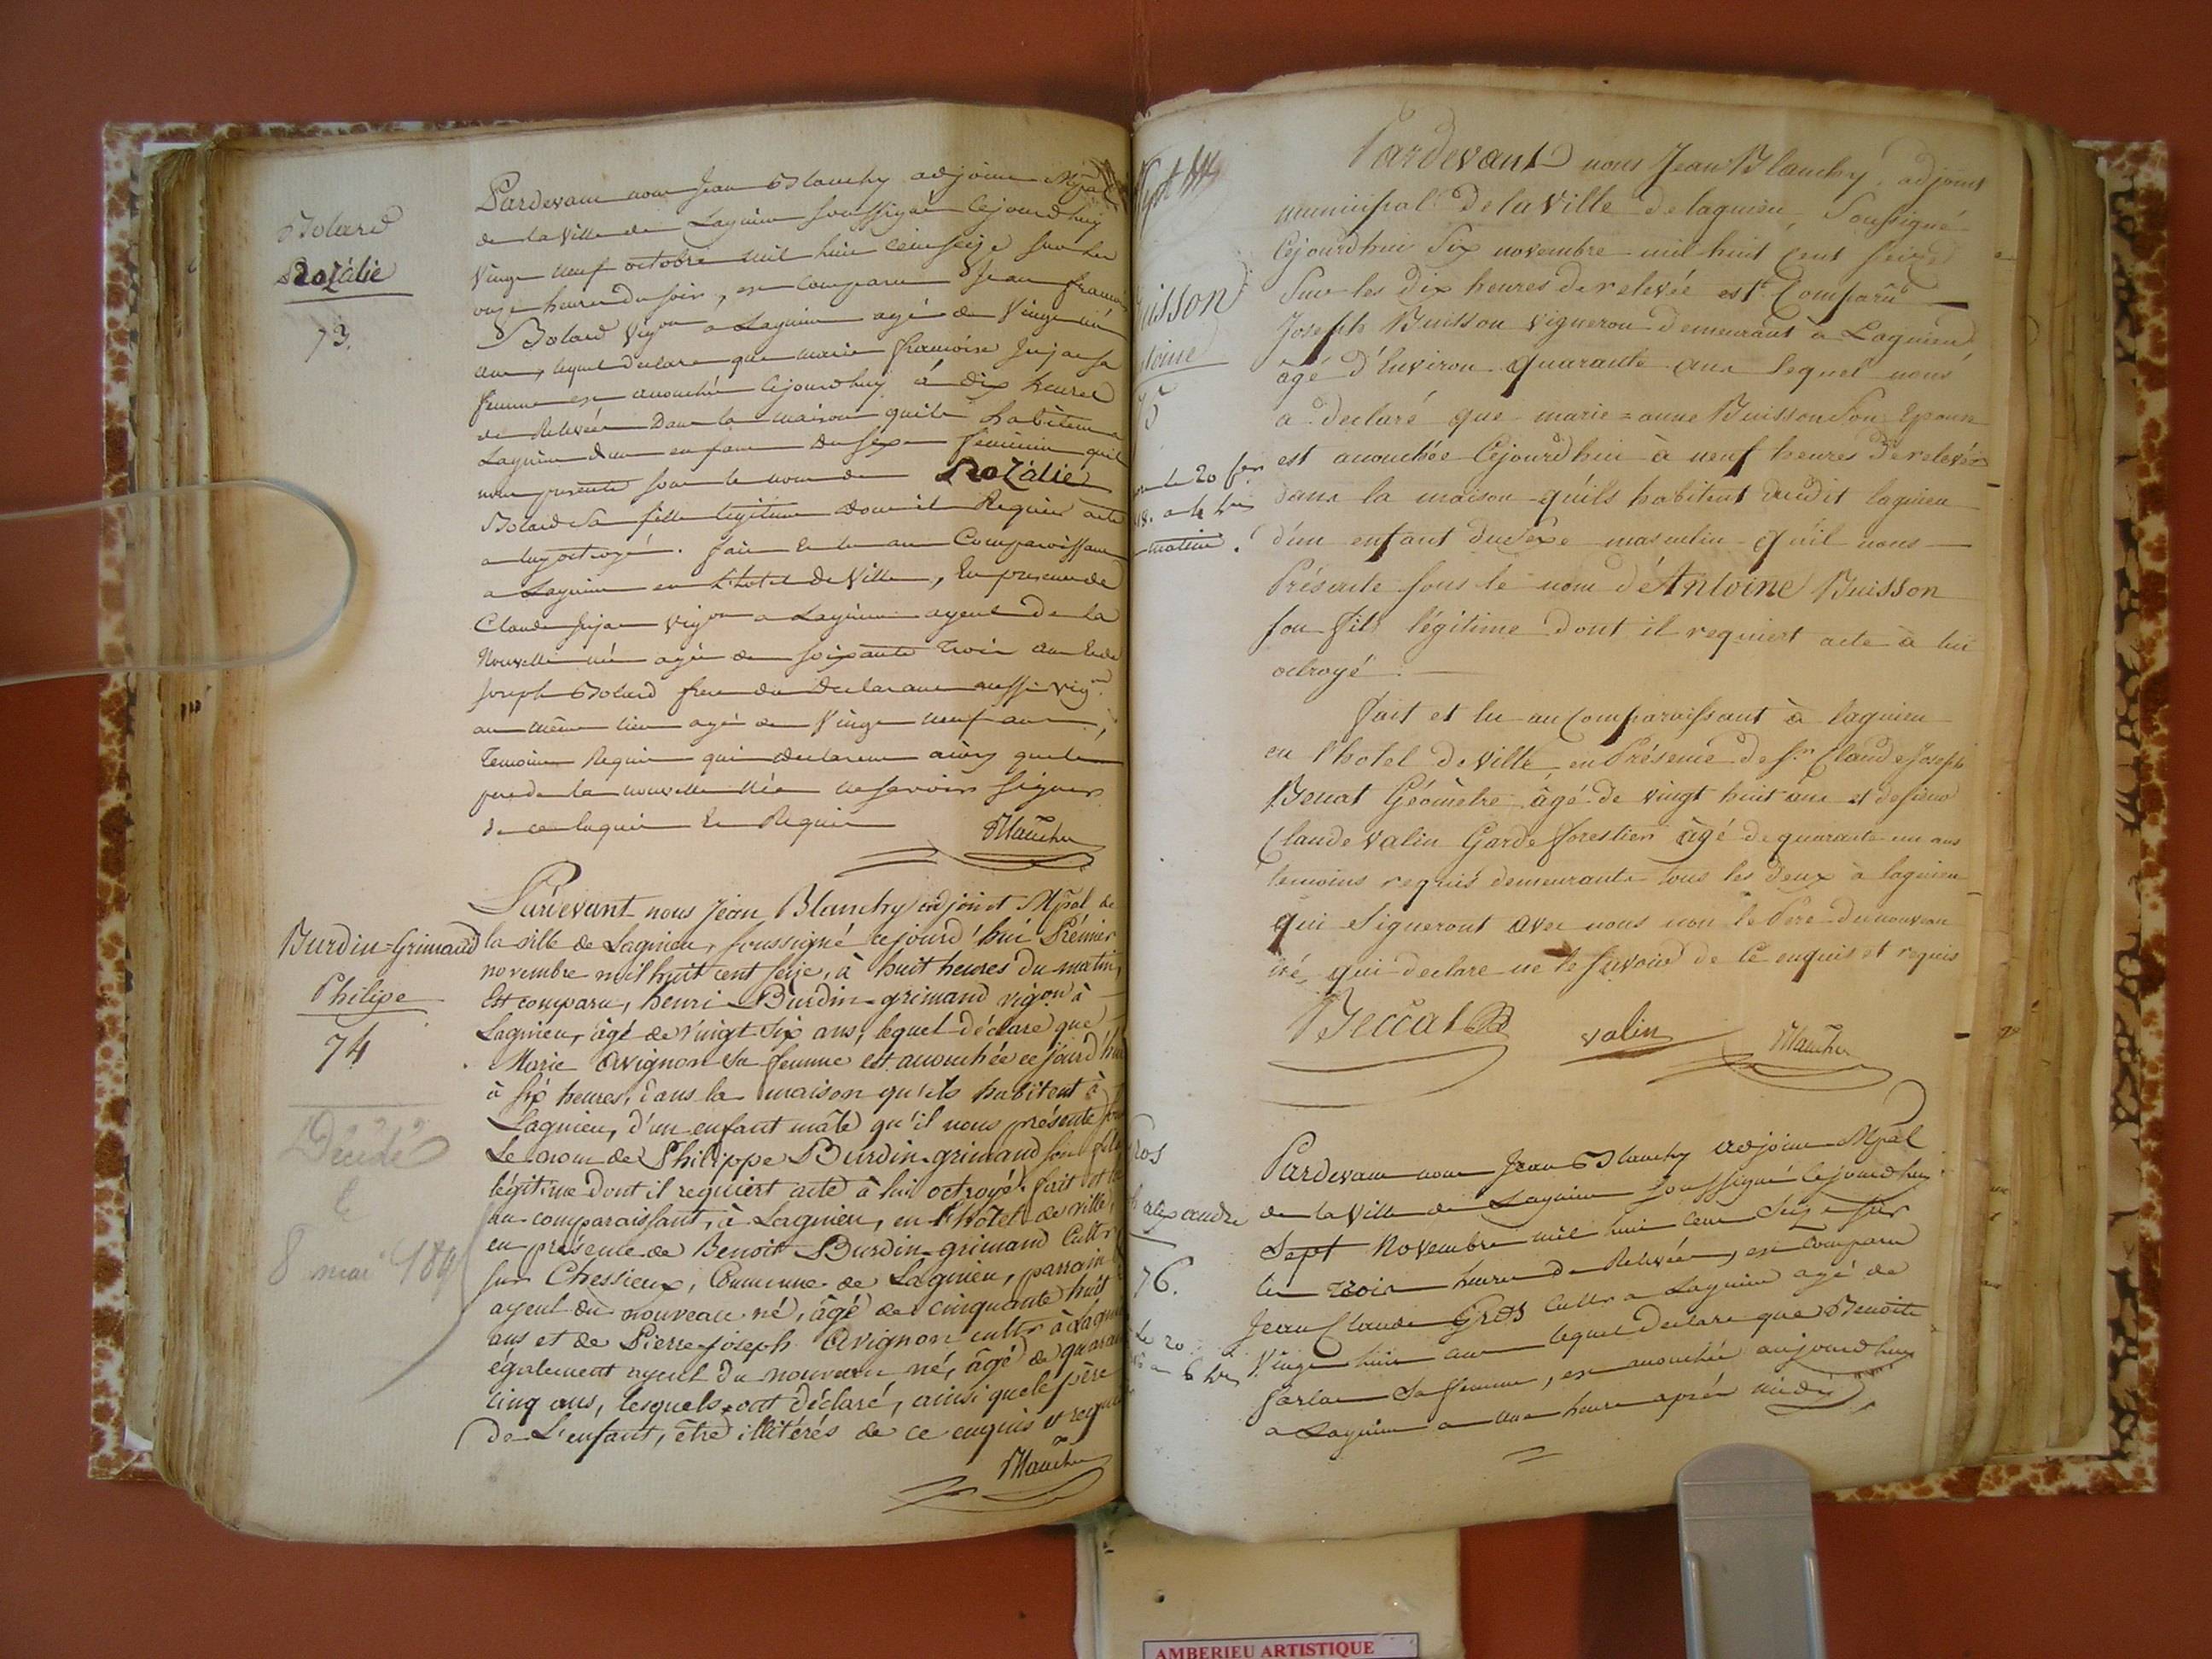 Bolard
Rozalie
73.
Pardevant nous Jean Blanchy adjoint Mpal
de la Ville de Lagnieu soussigné cejourdhuy
Vingt neuf octobre mil huit cent seize sur les
onze heures du soir, est comparu Jean françois
Bolard vigon a Lagnieu agé de Vingt
ans, lequel declare que marie françoise Jujat sa
femme est acouchée cejourdhuy à dix heures
de Relevée Dans la maison quils habitent a
Lagnieu dun enfant du sexe feminin quil
nous presente sous le nom de Rozalie
Bolard sa fille legitime dont il Requier acte
a luy octroyé. fait & lu au Comparoissant
a Lagnieu en L'hotel de Ville, en presence de
Claude Jujat vigon a Lagnieu ayeul de la
Nouvelle née agé de soixante trois ans & de
Joseph Bolard frere du declarant aussi vign
au même lieu agé de Vingt neuf ans,
Temoins Requis qui declarent ainsy que le
pere de la nouvelle née ne savoir signer
de ce enquis & Requis
Blanchy
Burdin=Grimaud
Philipe
74
Décédé
le
8 mai 189
Pardevant nous Jean Blanchy adjoint Mpal de
la ville de Lagnieu, soussigné cejourd'hui Prémier
novembre mil huit cent seize, à huit heures du matin,
Est comparu, henri Burdin-grimaud vigon à
Lagnieu, âgé de vingt six ans, lequel déclare que
Marie Avignon sa femme est acouchée ce jourd'hui
à six heures, dans la maison qu'ils habitent à
Lagnieu, d'un enfant mâle qu'il nous présente sous
Le nom de Philippe Burdin-grimaud son fils
légitime dont il requiert acte à lui octroyé. fait et lu
au comparaissant, à Lagnieu, en l'hôtel de ville,
en présence de Benoit Burdin-grimaud Cultr
sur Chessieux, Commune de Lagnieu, parrain
ayeul du nouveau né, âgé de cinquante huit
ans et de Pierre joseph Avignon cultr à Lagnieu
également ayeul du nouveau né, âgé de quarante
cinq ans, lesquels ont déclaré, ainsi que le père
de L'enfant, être illitérés de ce enquis et requis
Blanchy
uisson
toine
75
le 20 fer
18. a 4 hes
matin.
Pardevant nous Jean Blanchy, adjoint
municipal de la Ville de lagnieu, Soussigné
Cejourdhui Six novembre mil huit cent seize
Sur les dix heures de relevée est Comparu
Joseph Buisson vigneron demeurant à Lagnieu
agé d'Environ quarante ans lequel nous
a declaré que marie=anne Buisson Son Epouse
est acouchée Cejourdhui à neuf heures de relevée
dans la maison qu'ils habitent audit lagnieu
d'un enfant du sexe masculin qu'il nous
Présente sous le nom d'Antoine Buisson
son fils légitime dont il requiert acte à lui
octroyé.
fait et lu au Comparaissant à lagnieu
en l'hotel de Ville en Présence de Sr. Claude Joseph
Beccat Géomètre âgé de vingt huit ans et de sieur
Claude Valin Garde forestier âgé de quarante un ans
temoins requis demeurants tous les deux à lagnieu
qui signeront avec nous non le Pere du nouveau
né, qui declare ne le savoir de ce enquis et requis
Beccat
valin
Blanchy
ros
alexandre
76.
le 20
a 6 hes
Pardevant nous Jean Blanchy adjoint Mpal
de la Ville de Lagnieu soussigné Cejourdhuy
Sept Novembre mil huit cent Seize sur
les trois heures de Relevée, est Comparu
Jean Claude Gros Cultr a Lagnieu agé de
Vingt huit ans lequel declare que Benoite
sa femme, est acouchée aujourdhuy
a Lagnieu a une heure aprés midy
AMBERIEU ARTISTIQUE